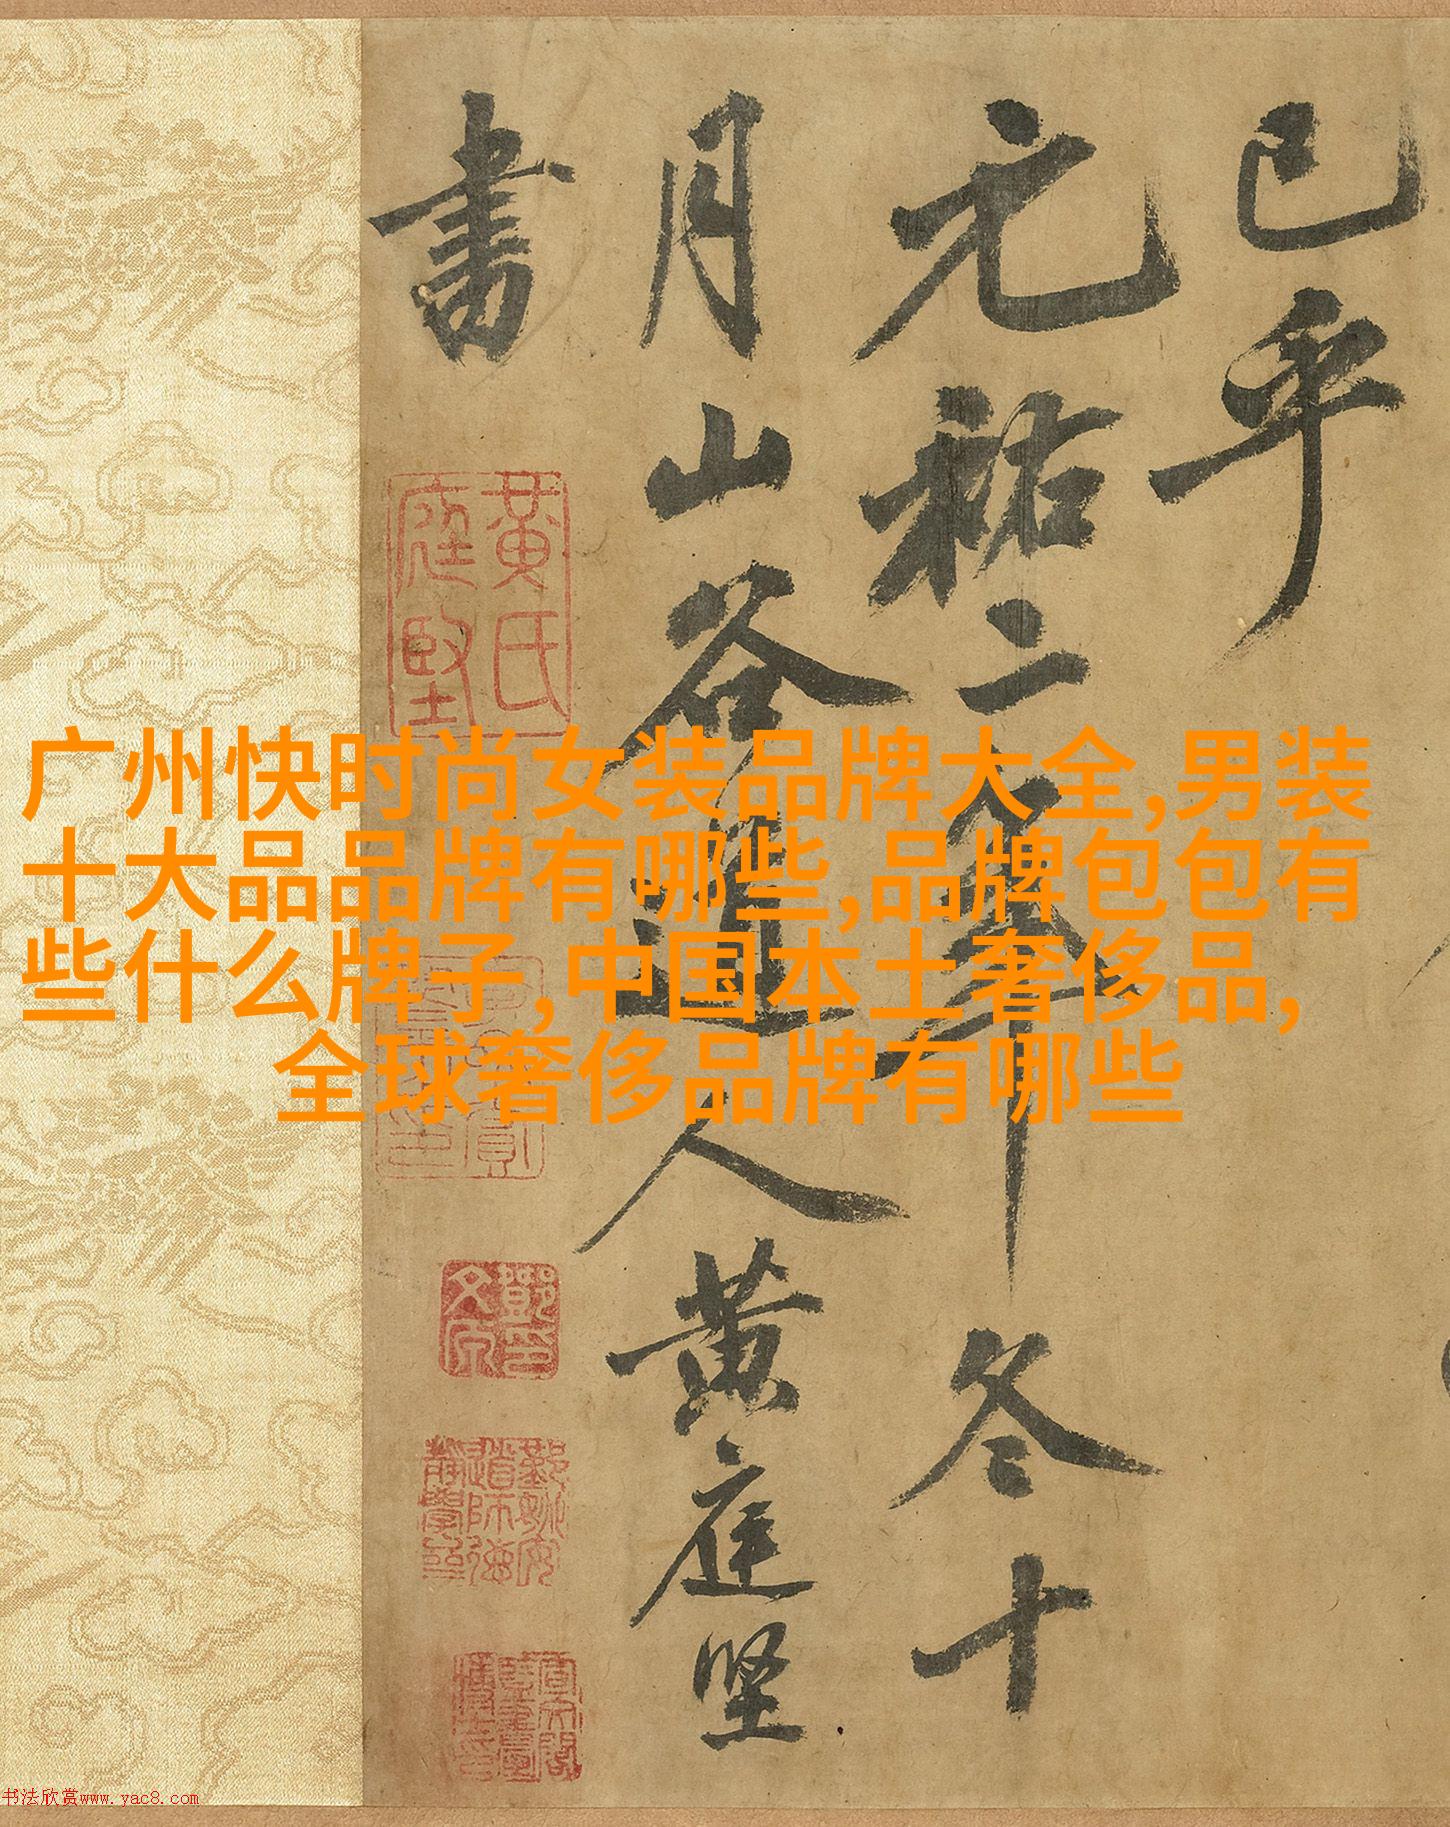 已乎
元祐二年冬十
月山谷道人黃庭堅
書
黃氏庭堅
广州快时尚女装品牌大全,男装
十大品品牌有哪些,品牌包包有
些什么牌子,中国本土奢侈品,
全球奢侈品牌有哪些
书法欣赏www.yac8.com